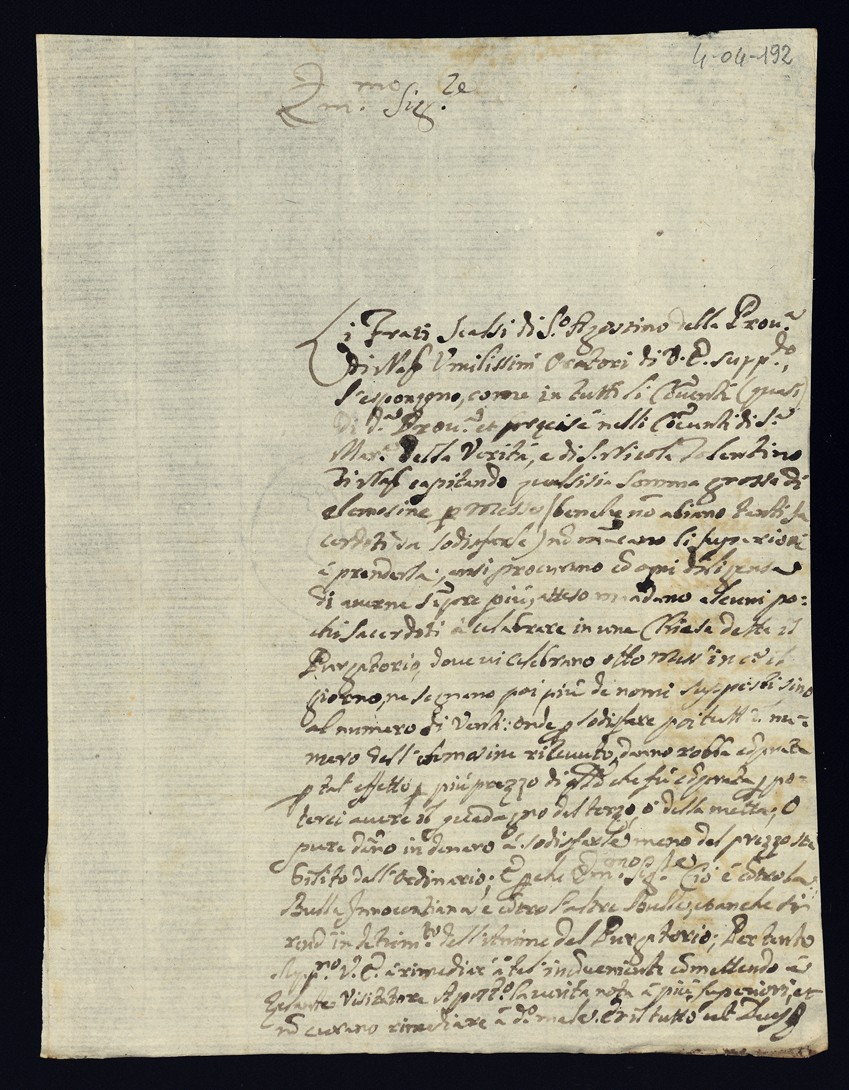 4-04-192
Em.mo Sig.re
Li Frati Scalsi di S.o Agostino della Prou.a
di Nap. Umilissimi Oratori di V. E. supp.do
l'espongono, come in tutti li Cōventi (quasi)
di d.a Prou.a et precise nelli Cōventi di S.a
Mar.a della Verità, e di S. Nicola Tolentino
di Nap. capitando qualsisia somma grossa di
elemosine p Messe (benche nō abiano tanti sa
cerdoti da sodisfarle) nō mācano li superiori
à prenderla; anzi procurano cō ogni diligenza
di averne sēpre più, atteso mādano alcuni po:
chi sacerdoti à celebrare in una Chiesa detta il
Purgatorio, dove vi celebrano otto messe in c.a il
giorno, ne segnano poi più de nomi supposti, sino
al numero di Venti: onde p sodisfare poi tutt' il nu=
mero dell' elemosine ricevute, danno robba cōprata
p tal' effetto p più prezzo di q.llo che fù cōprata p po-
terci avere il guadagno del terzo, ò della metta, O
pure dāno in denaro à sodisfarle meno del prezzo sta
bilito dall' Ordinario; E pche Em.mo Sig.re Ciò è cōtro la
Bulla Innocentiana è cōtro l'altre Bulle, et anche si
rend' in detrim.to dell' Anime del Purgatorio; Pertanto
supp.no V. E. à rimediar' à tal' incōvenienti cōmettendo à
Visitatore Apost.o la verità nota à più superiori, et
nō curano rimediare à d.o male. Et il tutto ut Deus